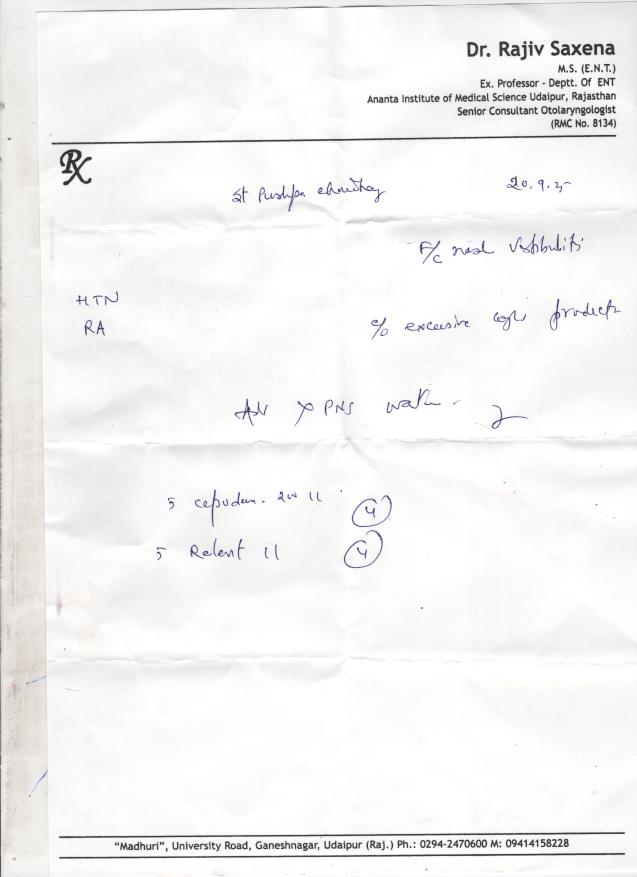 Dr. Rajiv Saxena
M.S. (E.N.T.)
Ex. Professor - Deptt. Of ENT
Ananta Institute of Medical Science Udaipur, Rajasthan
Senior Consultant Otolaryngologist
(RMC No. 8134)
Rx
St Pushpa 20.9.
F/C nasal vestibulitis
HTN
RA
c/o excessive products
PNS
5 200 11 4
5 Relent 11 4
"Madhuri", University Road, Ganeshnagar, Udaipur (Raj.) Ph.: 0294-2470600 M: 09414158228